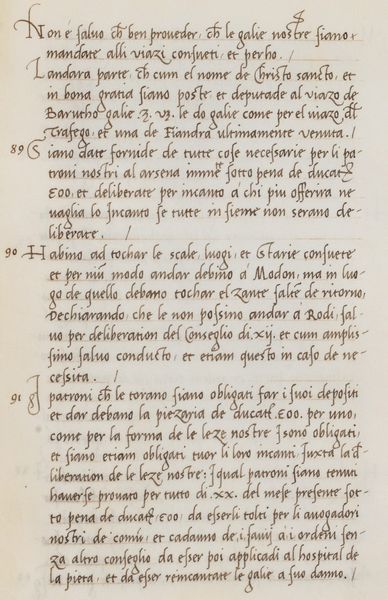 Non é salvo ch̄ ben proveder, ch̄ le galie nostre siano
mandate alli viazi consueti, et perho. /
Landara parte, ch̄ cum el nome de Christo sancto, et
in bona gratia siano poste et deputade al viazo de
Barutho galie .3. vz. le do galie come per el viazo dl̄
Trafego, et una de Fiandra ultimamente venuta. /
89 Siano date fornide de tutte cose necessarie per li pa-
troni nostri al arsena imme^te sotto pena de ducat̄
500, et deliberate per incanto á chi piu offerira ne
vaglia lo Incanto se tutte in sieme non serano de-
liberate. /
90 Habino ad tochar le scale, luogi, et starie consuete
et per niū modo andar debino á Modon, ma in luo-
go de quello debano tochar el Zante salte de ritorno,
Dechiarando, che le non possino andar á Rodi, sal-
vo per deliberation del Conseglio di .xij. et cum amplis-
simo salvo conducto, et etiam questo in caso de ne-
cessita. /
91 I patroni ch̄ le torano siano obligati far i suoi depositi
et dar debano la piezaria de ducat̄ 500. per uno,
come per la forma de le leze nostre Isono obligati,
et siano etiam obligati tuor li loro incanti Iuxta la d̄-
liberation de le leze nostre: Iqual patroni siano tenuti
haverse provato per tutto di .xx. del mese presente sot-
to pena de ducat̄, 500, da esserli tolti per li avogadori
nostri de comū, et cadauno de, i, savij a i ordeni sen-
za altro conseglio da esser poi applicadi al hospital de
la pieta, et da esser reincantate le galie a suo danno. /